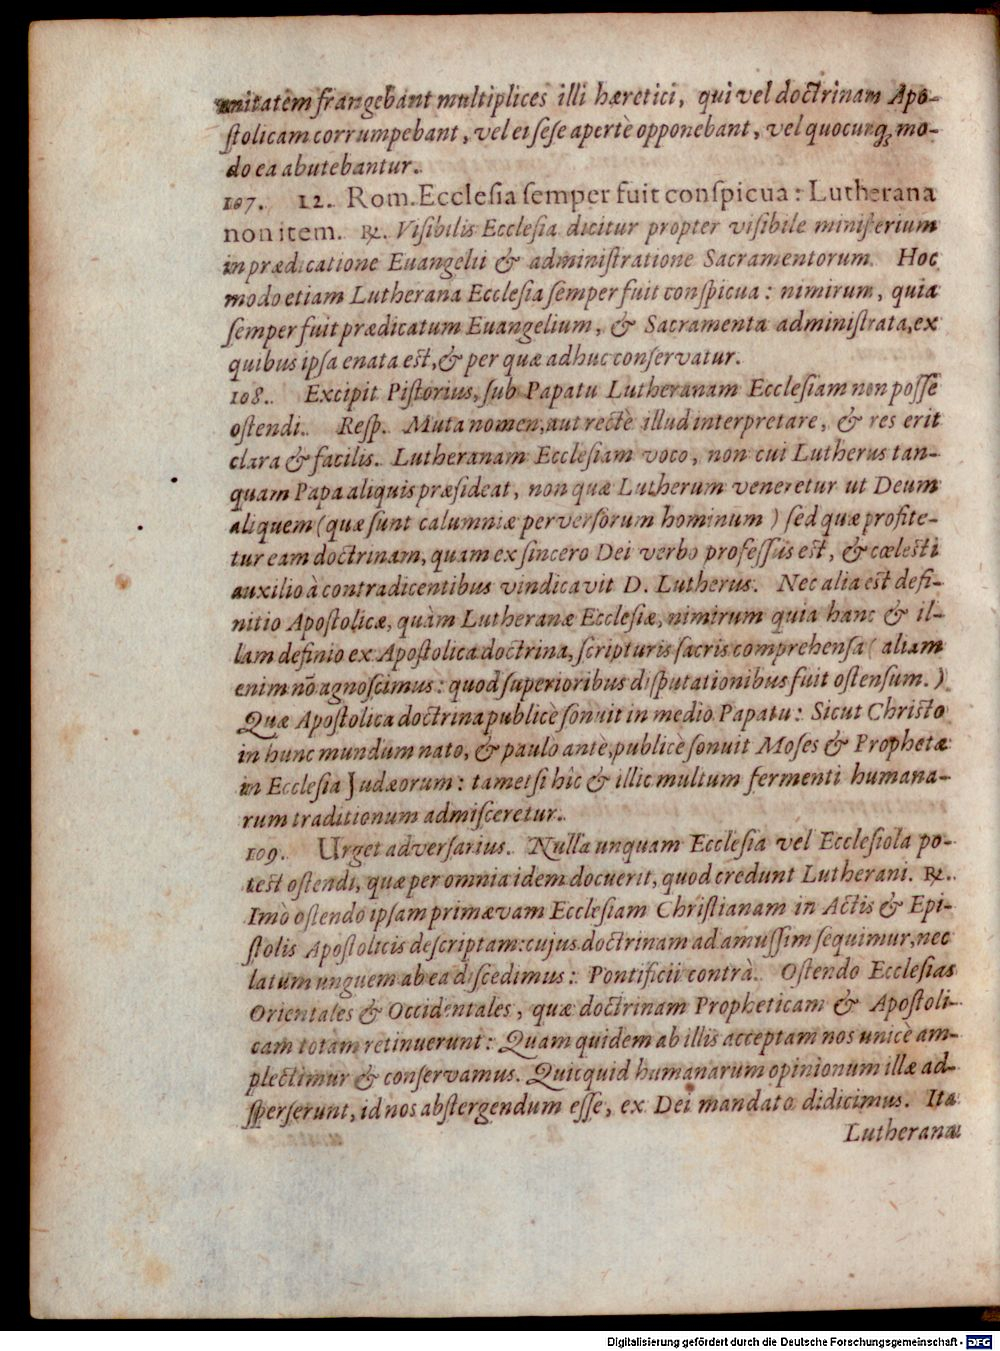 unitatem frangebant multiplices illi hæretici, qui vel doctrinam Apo-
ſtolicam corrumpebant, vel ei ſeſe apertè opponebant, vel quocunq; mo-
do ea abutebantur.
107. 12. Rom. Eccleſia ſemper fuit conſpicua: Lutherana
non item. ℞. Viſibilis Eccleſia dicitur propter viſibile miniſterium
in prædicatione Euangelii & adminiſtratione Sacramentorum. Hoc
modo etiam Lutherana Eccleſia ſemper fuit conſpicua: nimirum, quia
ſemper fuit prædicatum Euangelium, & Sacramenta adminiſtrata, ex
quibus ipſa enata eſt, & per quæ adhuc conſervatur.
108. Excipit Piſtorius, ſub Papatu Lutheranam Eccleſiam non poſſe
oſtendi. Reſp. Muta nomen, aut rectè illud interpretare, & res erit
clara & facilis. Lutheranam Eccleſiam voco, non cui Lutherus tan-
quam Papa aliquis præſideat, non quæ Lutherum veneretur ut Deum
aliquem (quæ ſunt calumniæ perverſorum hominum) ſed quæ profite-
tur eam doctrinam, quam ex ſincero Dei verbo profeſſus eſt, & cœleſti
auxilio à contradicentibus vindicavit D. Lutherus. Nec alia eſt defi-
nitio Apoſtolicæ, quàm Lutheranæ Eccleſiæ, nimirum quia hanc & il-
lam definio ex Apoſtolica doctrina, ſcripturis ſacris comprehenſa (aliam
enim nō agnoſcimus: quod ſuperioribus diſputationibus fuit oſtenſum.)
Quæ Apoſtolica doctrina publicè ſonuit in medio Papatu: Sicut Chriſto
in hunc mundum nato, & paulo antè, publicè ſonuit Moſes & Prophetæ
in Eccleſia Judæorum: tametſi hîc & illic multum fermenti humana-
rum traditionum admiſceretur.
109. Urget adverſarius. Nulla unquam Eccleſia vel Eccleſiola po-
teſt oſtendi, quæ per omnia idem docuerit, quod credunt Lutherani. ℞.
Imò oſtendo ipſam primævam Eccleſiam Chriſtianam in Actis & Epi-
ſtolis Apoſtolicis deſcriptam: cujus doctrinam ad amuſſim ſequimur, nec
latum unguem ab ea diſcedimus: Pontificii contrà. Oſtendo Eccleſias
Orientales & Occidentales, quæ doctrinam Propheticam & Apoſtoli-
cam totam retinuerunt: Quam quidem ab illis acceptam nos unicè am-
plectimur & conſervamus. Quicquid humanarum opinionum illæ ad-
ſperſerunt, id nos abſtergendum eſſe, ex Dei mandato didicimus. Ita
Lutherana
Digitalisierung gefördert durch die Deutsche Forschungsgemeinschaft - DFG